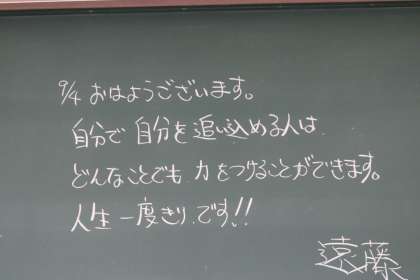 9/4 おはようございます。
自分で自分を追い込める人は
どんなことでも力をつけることができます。
人生一度きりです!!
遠藤